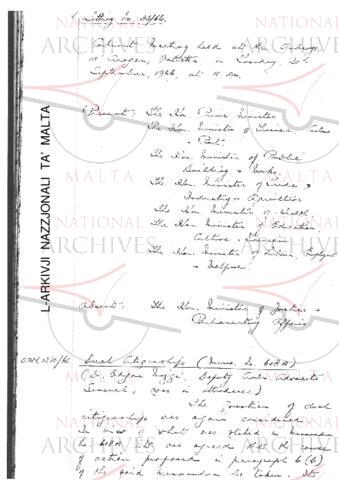 NATIONAL
ARCHIVES
MALTA
L-ARKIVJI NAZZJONALI TA' MALTA
Cabinet Meeting held at the Auberge
d'Aragon, Valletta, on Tuesday, 20th
September, 1966, at 11 a.m.
Present: The Hon. Prime Minister
The Hon. Minister of Finance, Customs
& Port
The Hon. Minister of Public
Building & Works
The Hon. Minister of Trade,
Industry & Agriculture
The Hon. Minister of Health
The Hon. Minister of Education,
Culture & Tourism
The Hon. Minister of Labour, Employment
& Welfare
Absent: The Hon. Minister of Justice &
Parliamentary Affairs
Dual Citizenship (Memo. No. 608A)
(Dr. Edgar Mizzi, Deputy
was in attendance)
The question of dual
citizenship was again considered.
In view of what was stated in memorandum
No 608A it was agreed that the course
of action proposed in paragraph 6(b)
of the said memorandum be taken.